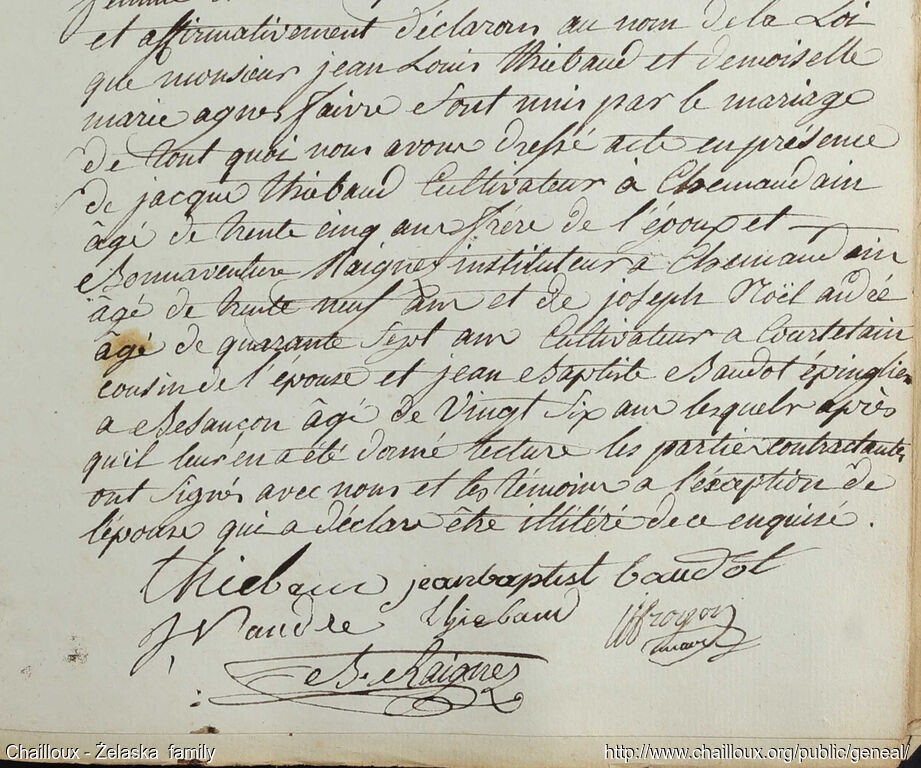 et affirmativement déclarons au nom de la Loi
que monsieur jean Louis thiebaud et demoiselle
marie agnes faivre sont unis par le mariage
de tout quoi nous avons dressé acte en présence
de jacque thiebaud Cultivateur à Chemaudain
âgé de trente cinq ans frére de l'époux et
Bonnaventure Raignes instituteur a Chemaudain
âgé de trente neuf ans et de joseph Noël andré
âgé de quarante sept ans Cultivateur a Courtetain
cousin de l'épouse et jean Baptiste Baudot épinglier
a Besançon âgé de Vingt six ans lesquels après
qu'il leur en a été donné lecture les partie contractantes
ont signés avec nous et les témoins a l'éxception de
l'épouse qui a déclaré être illitéré de ce enquisé.
thiebaux jeanbaptist baudot
JN andre thiebaud
B. Raignes
Chailloux - Żelaska family http://www.chailloux.org/public/geneal/